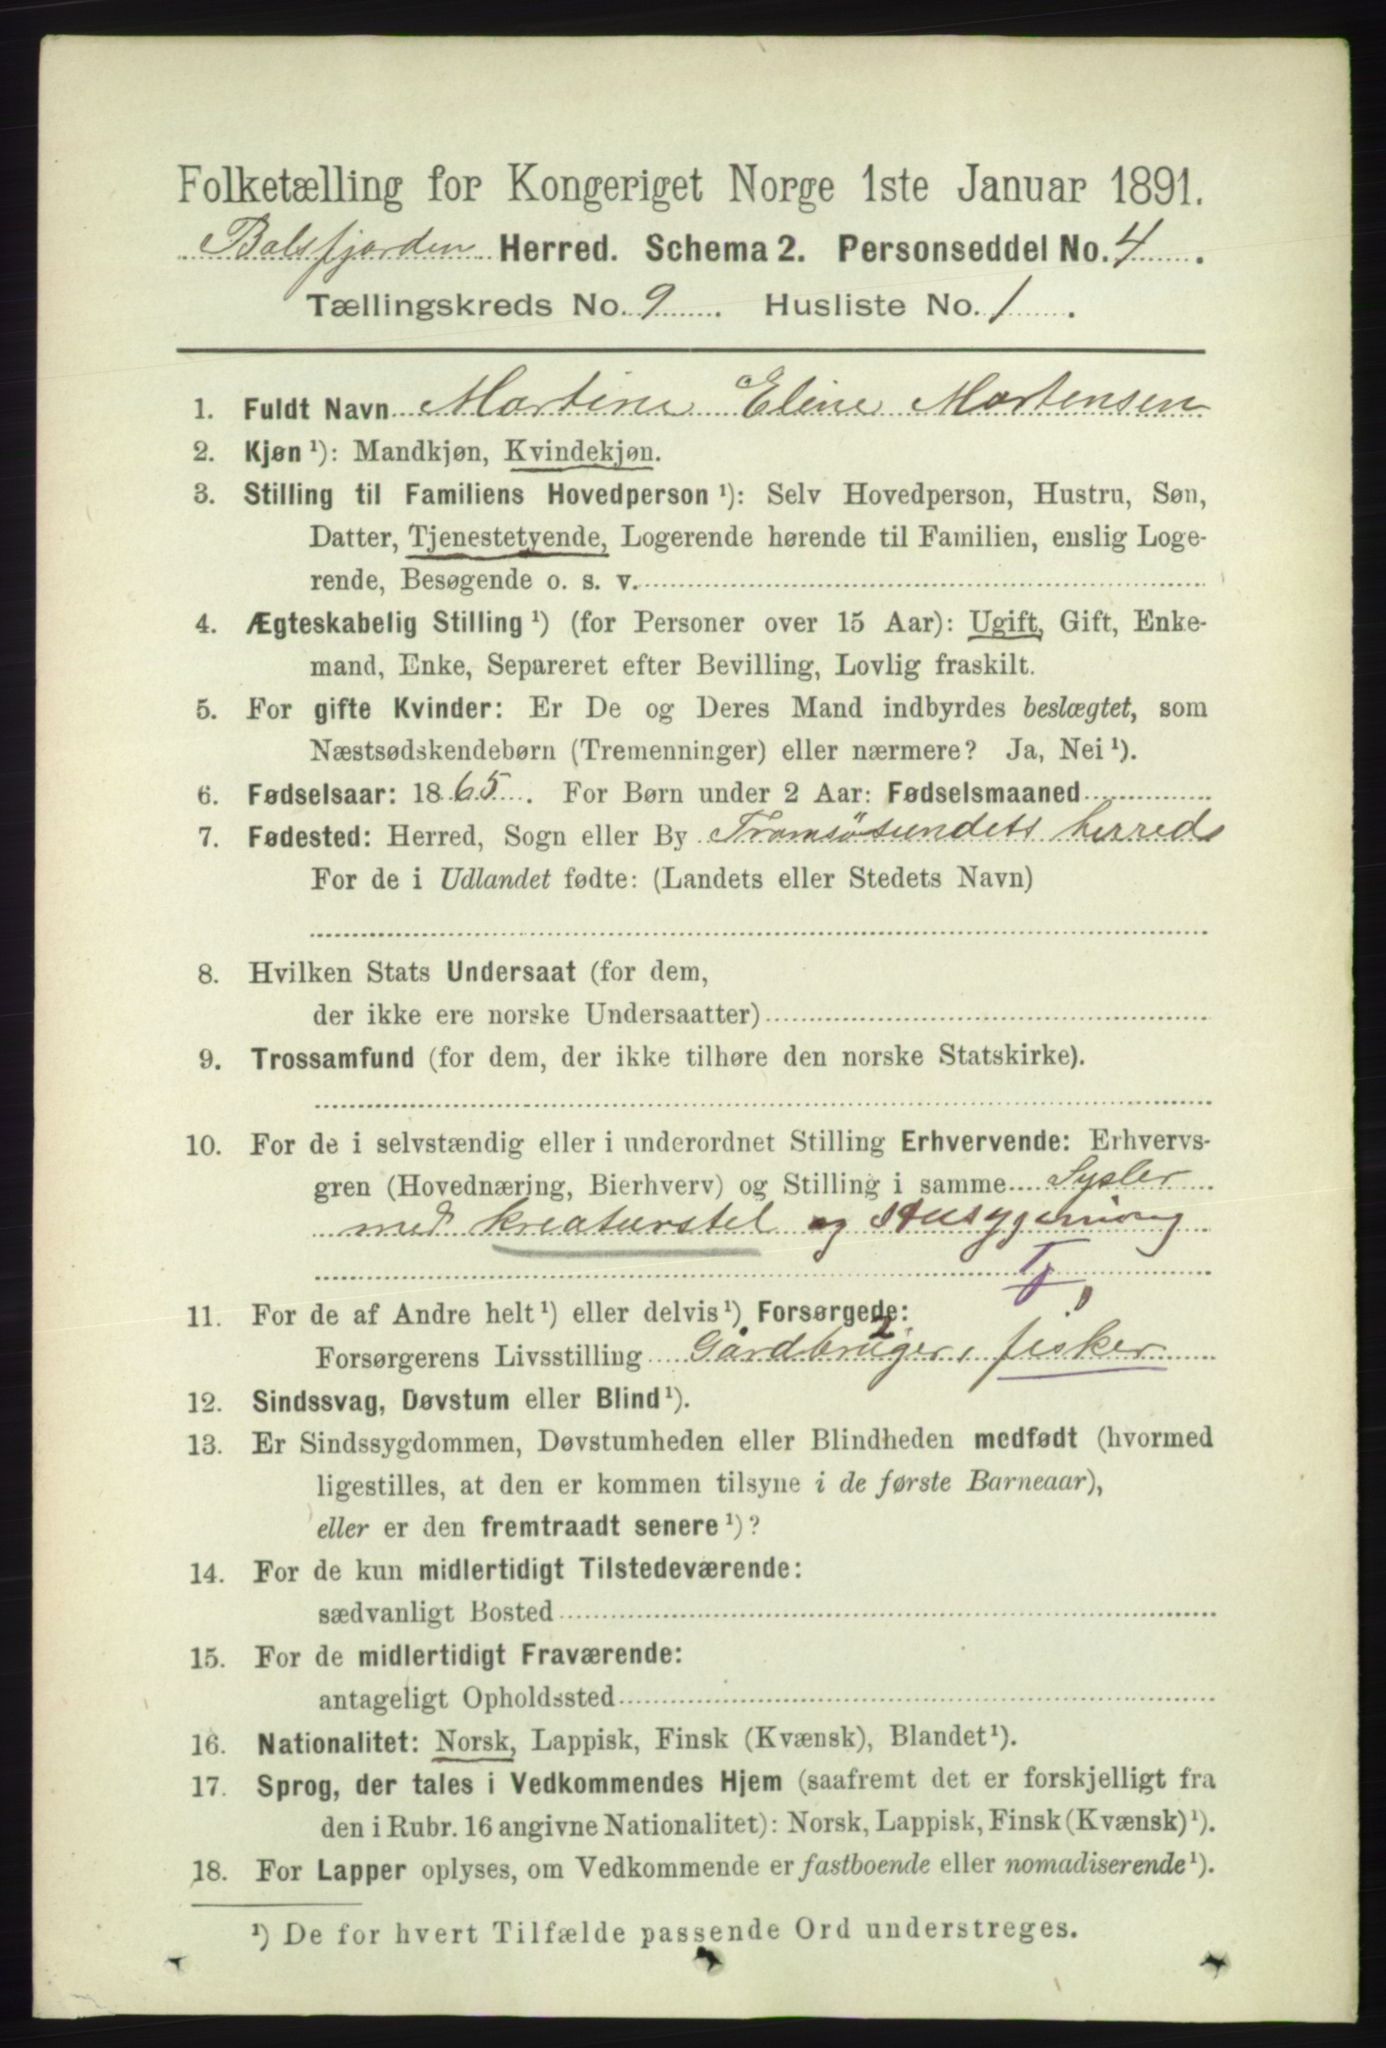 Folketælling for Kongeriget Norge 1ste Januar 1891.
Balsfjorden Herred. Schema 2. Personseddel No. 4.
Tællingskreds No. 9. Husliste No. 1.
1. Fuldt Navn Martine Eline Mortensen
2. Kjøn ¹): Mandkjøn, Kvindekjøn.
3. Stilling til Familiens Hovedperson ¹): Selv Hovedperson, Hustru, Søn,
Datter, Tjenestetyende, Logerende hørende til Familien, enslig Loge-
rende, Besøgende o. s. v.
4. Ægteskabelig Stilling ¹) (for Personer over 15 Aar): Ugift, Gift, Enke-
mand, Enke, Separeret efter Bevilling, Lovlig fraskilt.
5. For gifte Kvinder: Er De og Deres Mand indbyrdes beslægtet, som
Næstsødskendebørn (Tremenninger) eller nærmere? Ja, Nei ¹).
6. Fødselsaar: 1865. For Børn under 2 Aar: Fødselsmaaned
7. Fødested: Herred, Sogn eller By Tromsøsundets herred
For de i Udlandet fødte: (Landets eller Stedets Navn)
8. Hvilken Stats Undersaat (for dem,
der ikke ere norske Undersaatter)
9. Trossamfund (for dem, der ikke tilhøre den norske Statskirke).
10. For de i selvstændig eller i underordnet Stilling Erhvervende: Erhvervs-
gren (Hovednæring, Bierhverv) og Stilling i samme Sysler
med kreaturstel og
11. For de af Andre helt ¹) eller delvis ¹) Forsørgede:
Forsørgerens Livsstilling Gårdbruger, fisker
2
12. Sindssvag, Døvstum eller Blind ¹).
13. Er Sindssygdommen, Døvstumheden eller Blindheden medfødt (hvormed
ligestilles, at den er kommen tilsyne i de første Barneaar),
eller er den fremtraadt senere ¹)?
14. For de kun midlertidigt Tilstedeværende:
sædvanligt Bosted
15. For de midlertidigt Fraværende:
antageligt Opholdssted
16. Nationalitet: Norsk, Lappisk, Finsk (Kvænsk), Blandet ¹).
17. Sprog, der tales i Vedkommendes Hjem (saafremt det er forskjelligt fra
den i Rubr. 16 angivne Nationalitet): Norsk, Lappisk, Finsk (Kvænsk) ¹).
18. For Lapper oplyses, om Vedkommende er fastboende eller nomadiserende ¹).
¹) De for hvert Tilfælde passende Ord understreges.